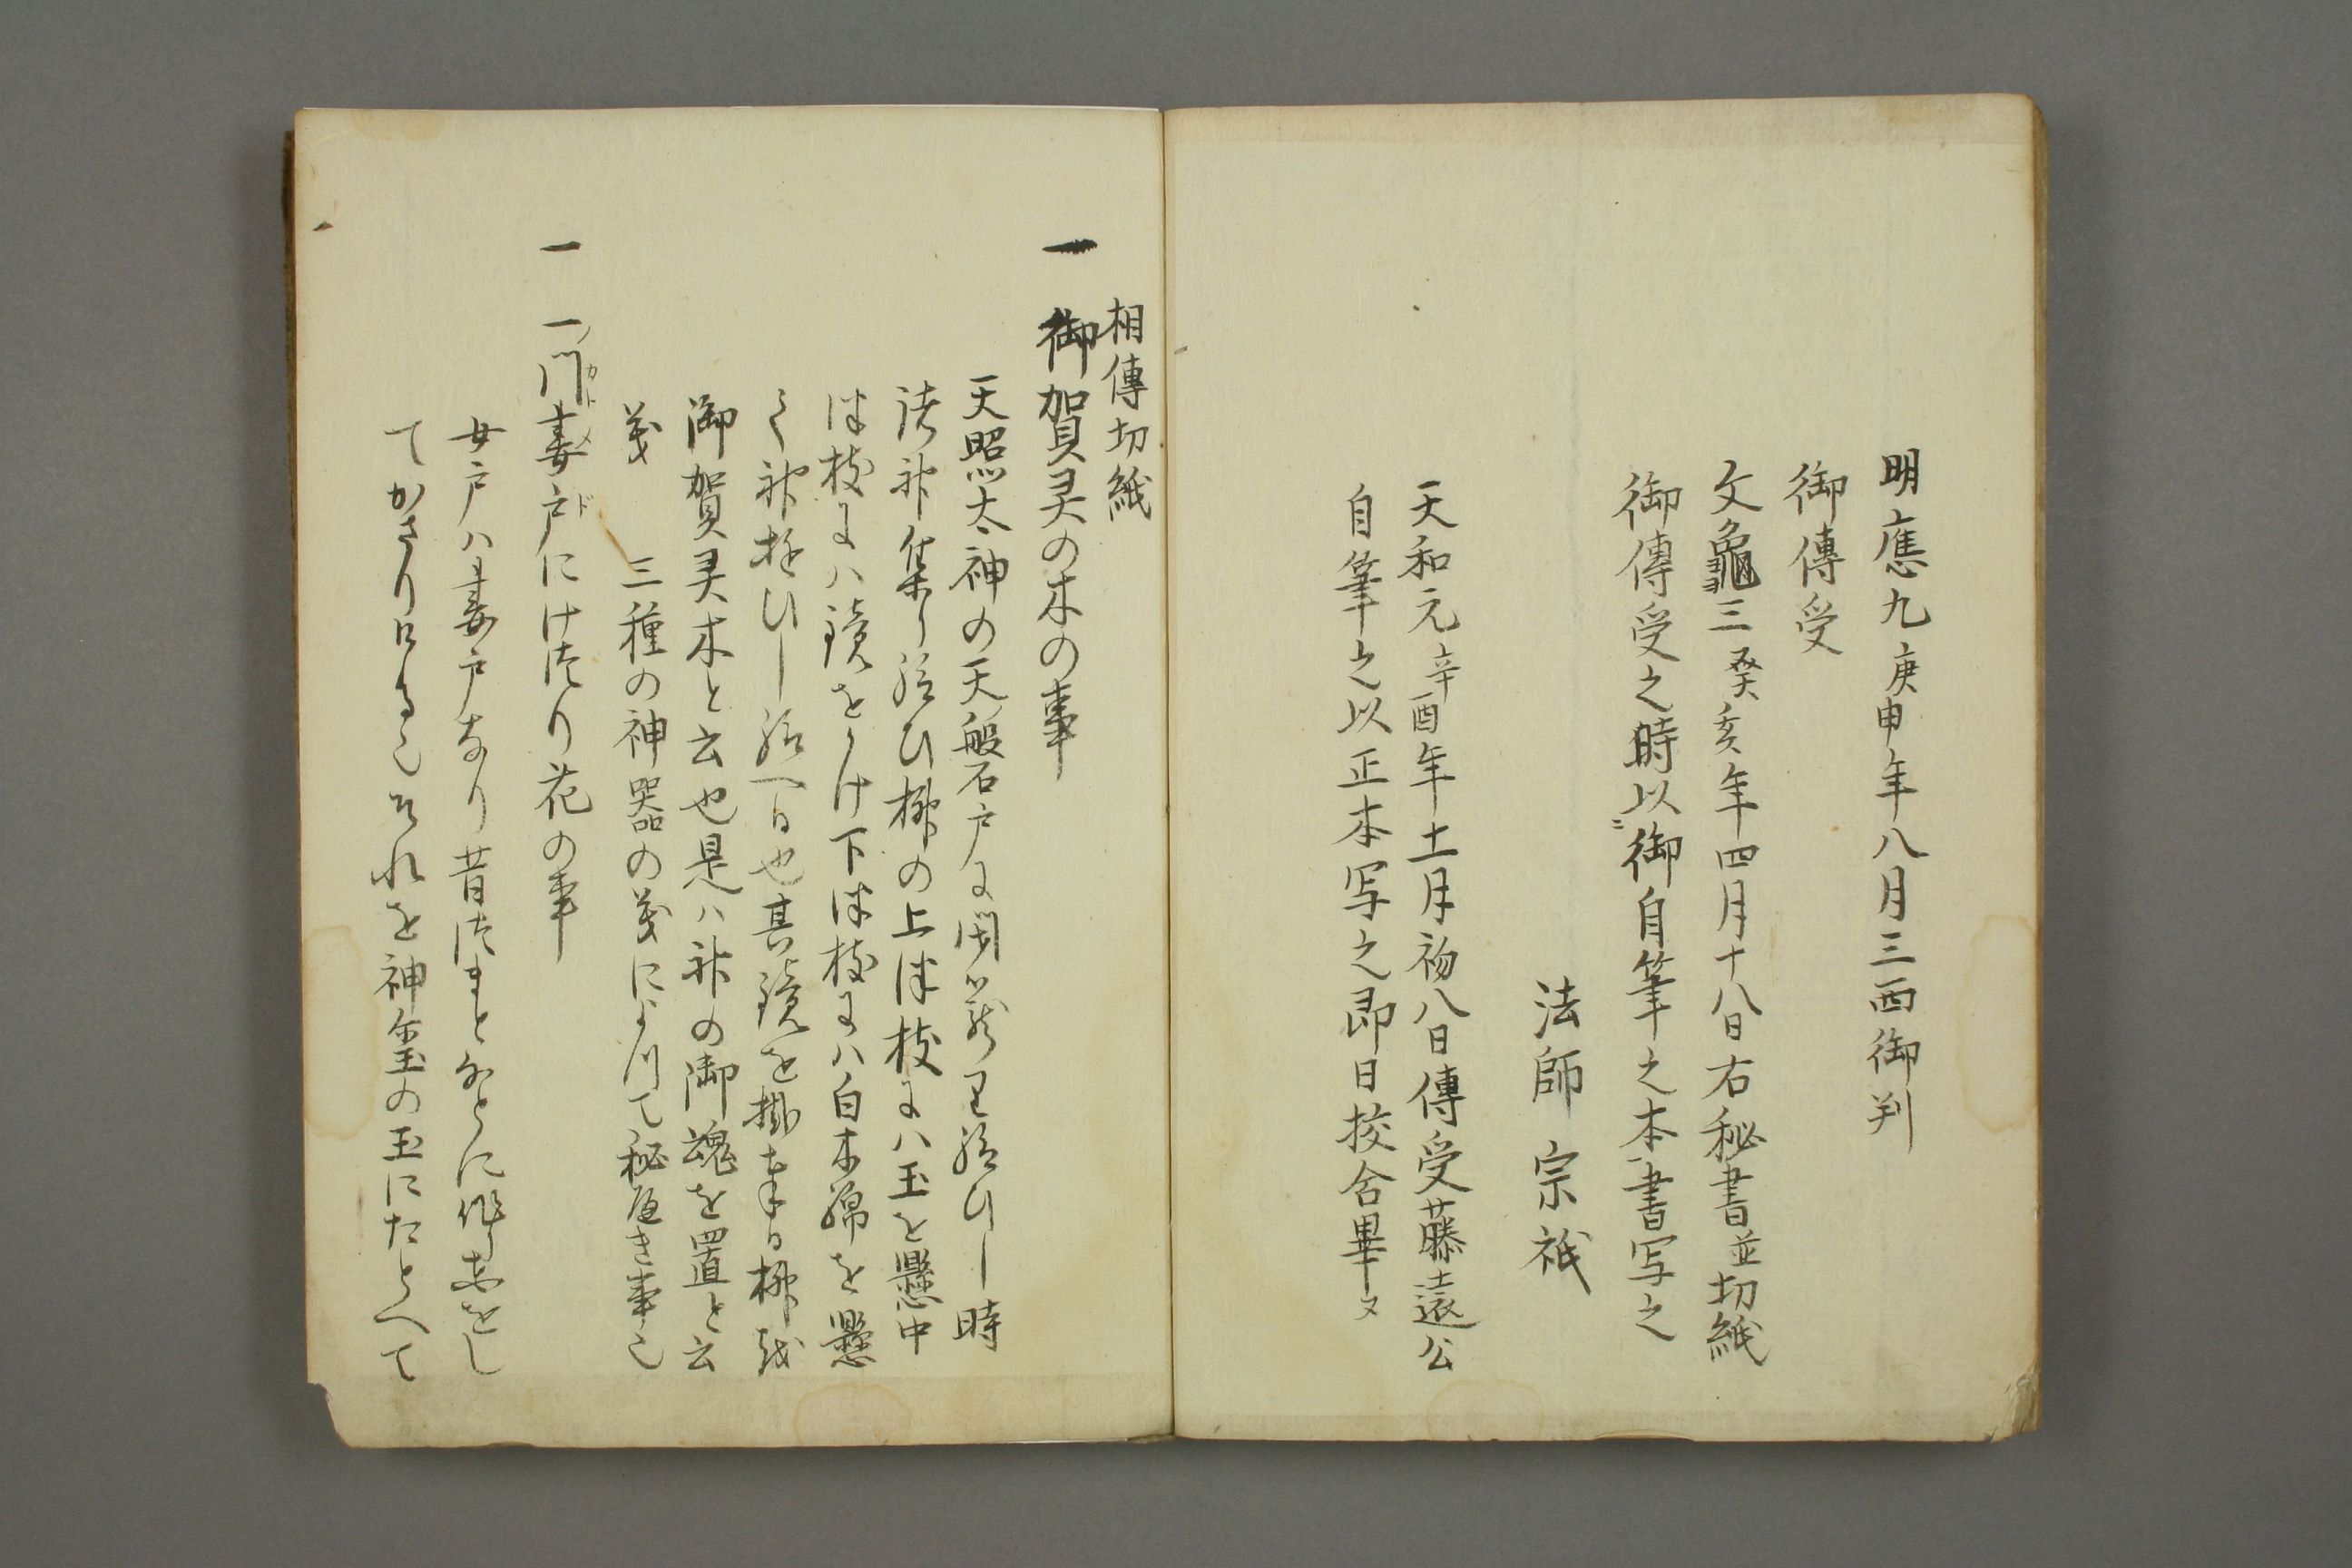 明應九庚申年八月三西御判
御傳受
文龜三癸亥年四月十八日右秘書並切紙
御傳受之時以御自筆之本書写之
法師宗祇
天和元辛酉年十一月初八日傳受藤遠公
自筆之以正本写之即日挍合畢
相傳切紙
一 御賀玉の木の事
天照太神の天磐石戸に閇籠り給ひし時
諸神集り給ひ榊の上津枝にハ玉を懸中
津枝にハ鏡をかけ下津枝にハ白木綿を懸
て神遊ひし給へ日也其鏡を掛奉る榊を
御賀玉木と云也是ハ神の御魂を置と云
義 三種の神器の義によりて秘すへき事也
一 一門妻戸にけつり花の事
カト メド
女戸ハ妻戸なり昔つまとことに作花をし
てかさりける也それを神璽の玉にたとへて